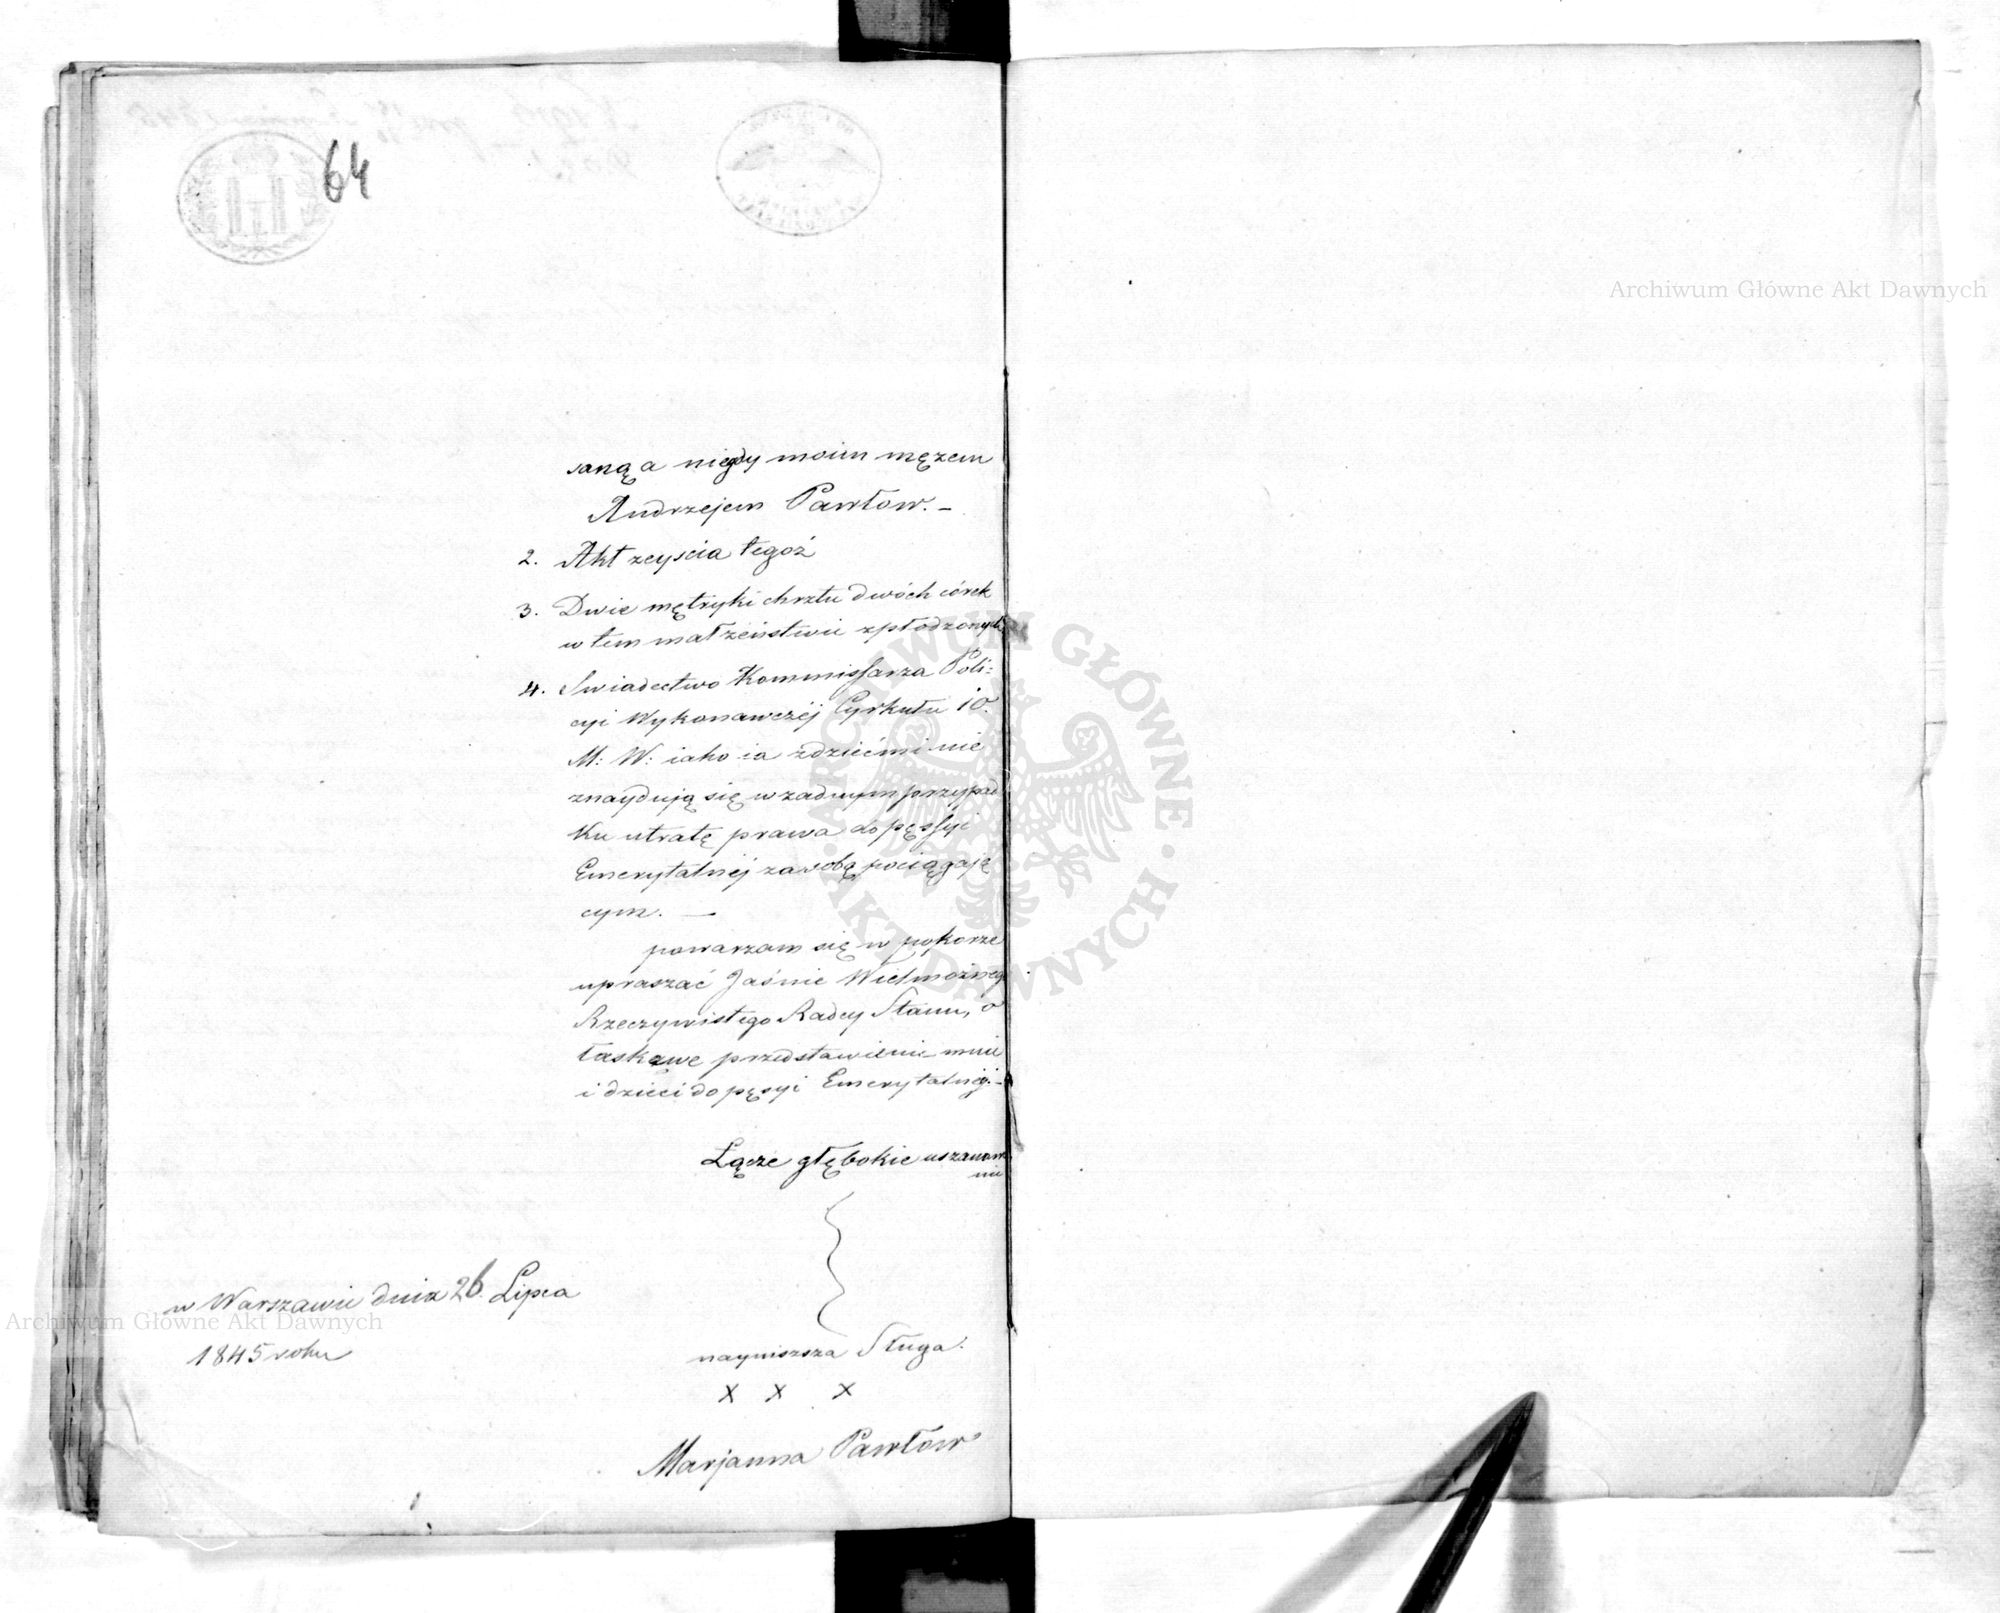 64
saną a niegdy moim mężem
Andrzejem Pawłow. –
2. Akt zeyscia tegoż
3. Dwie mętryki chrztu dwóch córek
w tem małżeństwie spłodzonych
4. Swiadectwo Kommissarza Poli:
cyi Wykonawczéj Cyrkułu 10.
M: W: iako ia zdziećmi nie
znayduią się w zadnym przypad
ku utratę prawa do pęssyi
Emerytalnéj za sobą pociągają
cym. —
powarzam się w pokorze
upraszać Jaśnie Wielmożnego
Rzeczywistego Radcy Stanu, o
łaskawe przedstawienie mnie
i dzieci do pęsyi Emerytalnéj. –
Łącze głębokie uszanowa
nie
w Warszawie dnia 26. Lipca
1845 roku
nayniszsza Sługa.
X X X
Marjanna Pawłow
Archiwum Główne Akt Dawnych
Archiwum Główne Akt Dawnych
ARCHIWUM GŁÓWNE · AKT DAWNYCH ·